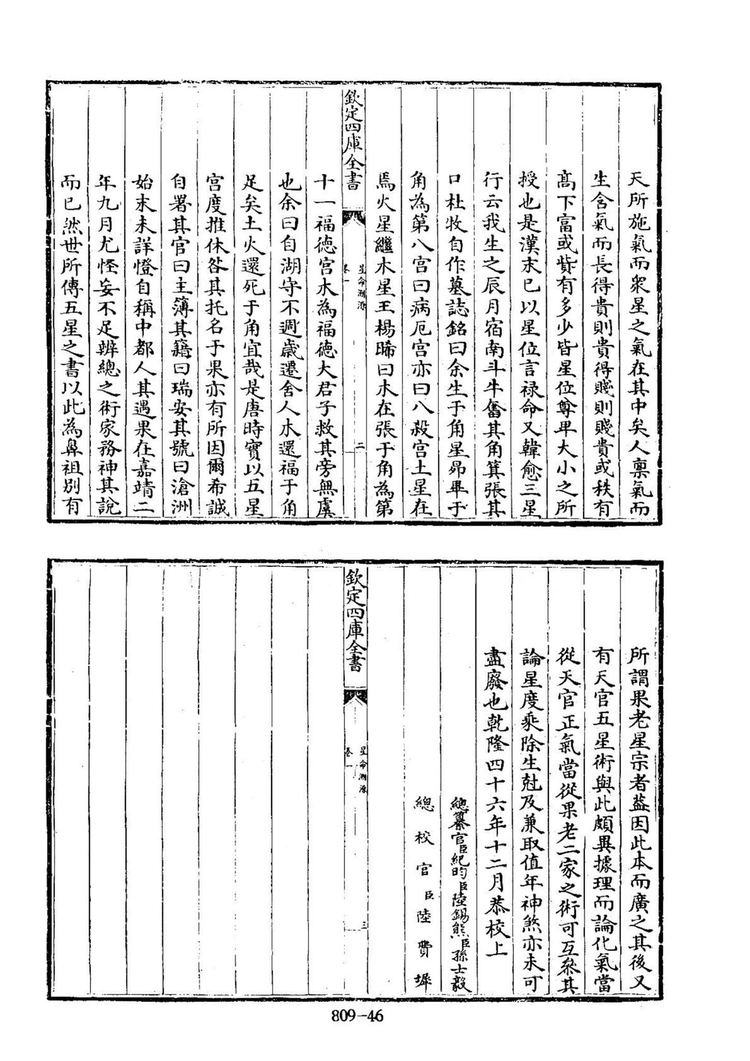 天所施氣而衆星之氣在其中矣人禀氣而
生含氣而長得貴則貴得賤則賤貴或秩有
髙下富或貲有多少皆星位尊卑大小之所
授也是漢末已以星位言禄命又韓愈三星
行云我生之辰月宿南斗牛奮其角箕張其
口杜牧自作墓誌銘曰余生于角星昴畢于
角為第八宫曰病厄宫亦曰八殺宫土星在
焉火星繼木星王楊晞曰木在張于角為第
欽定四庫全書
星命溯源
卷一
二
十一福德宫木為福徳大君子救其旁無虞
也余曰自湖守不週歲還舍人木還福于角
足矣土火還死于角宜哉是唐時實以五星
宫度推休咎其托名于果亦有所因爾希誠
自署其官曰主簿其籍曰瑞安其號曰滄洲
始末未詳憕自稱中都人其遇果在嘉靖二
年九月尤怪妄不足辨總之術家務神其説
而已然世所傳五星之書以此為鼻祖别有
所謂果老星宗者葢因此本而廣之其後又
有天官五星術與此頗異據理而論化氣當
從天官正氣當從果老二家之術可互叅其
論星度乘除生尅及兼取值年神煞亦未可
盡廢也乾隆四十六年十二月恭校上
總纂官臣紀昀臣陸錫熊臣孫士毅
總校官臣陸費墀
欽定四庫全書
星命溯源
卷一
三
809-46